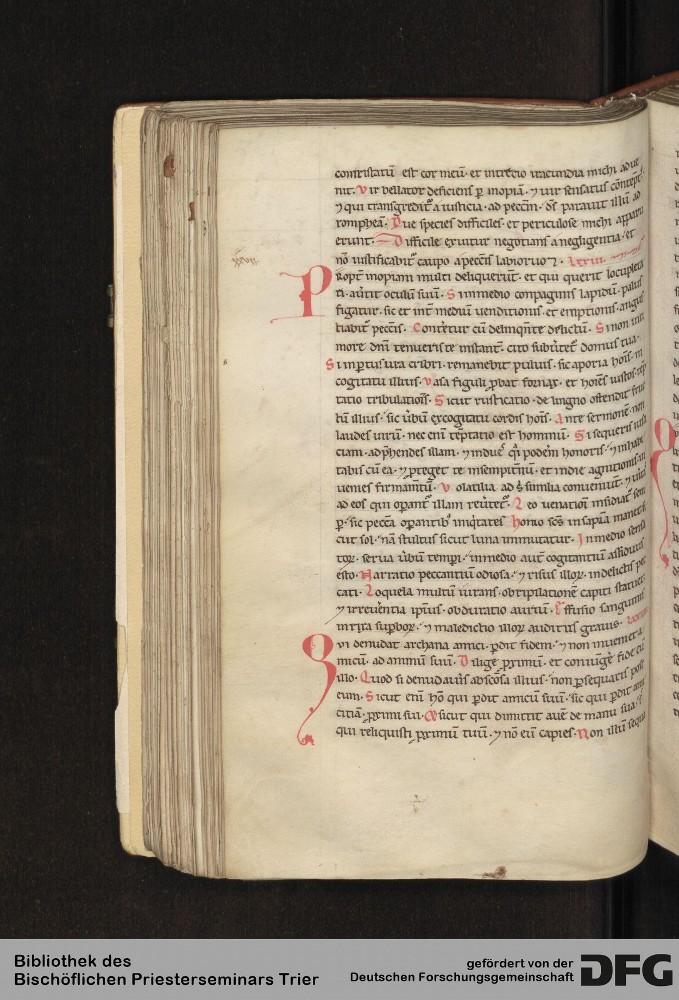 contristatū est cor meū · et in tercio iracundia michi adue
nit. Vir bellator deficiens ꝑ inopiā · ⁊ uir sensatus cōtēpt᷒
⁊ qui transgredit᷑ a iusticia · ad peccm̄ · ds̄ parauit illū ad
rompheā. Due species difficiles · et periculose michi apparu
erunt · Difficile exuitur negotians a negligentia · et
nō iustificabit᷑ caupo a pecc̄is labioꝝ
xxvii
Ropt̄ inopiam multi deliquerūt · et qui querit locupleta
ri · auertit oculū suū · Si in medio conpaginis lapidū · palus
figatur · sic et int̄ mediū uenditionis · et emptionis · angus
tiabit᷑ pecc̄is. Conteretur cū delinquente delictū · Si non in ti
more dnī tenueris te instant̄ · cito subuertet᷑ domus tua ·
Si in ꝑtusura cribri · remanebit puluis · sic aporia hoīs · in
cogitatu illius · Vasa figuli ꝓbat fornax · et hoīes iustos · tēp
tatio tribulationis̄ · Sicut rusticatio · de ligno ostendit fruc
tū illius · sic ūbum ex cogitatu cordis hoīs · Ante sermonē · non
laudes uirū · nec enī tēptatio est hominū · Si sequeris iusti
ciam · adp̄hendes illam · ⁊ indues q̄si poderē honoris · ⁊ inhabi
tabis cū ea · ⁊ ꝓteget te in sempit̄nū · et in die agnitionis · in
uenies firmam̄tū · Volatilia · ad sī similia conueniūt · ⁊ ueritas
ad eos qui operant᷑ illam reūtet᷑ · Leo uenationi insidiat᷑ sem
ꝑ · sic pecc̄a operantib᷒ iniq̄tates · Homo scs̄ in sapīa manet si
cut sol · nā stultus sicut luna inmutatur · In medio sensa
toꝝ · serua ūbū tempi · in medio aut̄ cogitantiū assiduus
esto · Narratio peccantiū odiosa · ⁊ risus illoꝝ · in delictis pec
cati · Loquela multū iurans · obripilationē capiti statuet ·
⁊ irreuerentia ipsius · obduratio auriū · Effusio sanguinis
in rixa supboꝝ · ⁊ maledictio illoꝝ auditus grauis ·
Qui denudat archana amici · ꝑdit fidem · ⁊ non inueniet a
micū · ad animū suū · Dilige ꝓximū · et coniungere fide cū
illo · Quod si denudaueris abscōsa illius · non ꝑsequaris post
eum · Sicut enī hō qui ꝑdit amicū suū · sic qui ꝑdit ami
citiā · ꝓximi sui · Et sicut qui dimittit auē de manu sua ·
qui reliquisti ꝓximū tuū · ⁊ nō eū capies · Non illū sequa
Bibliothek des
Bischöflichen Priesterseminars Trier
gefördert von der
Deutschen Forschungsgemeinschaft
DFG